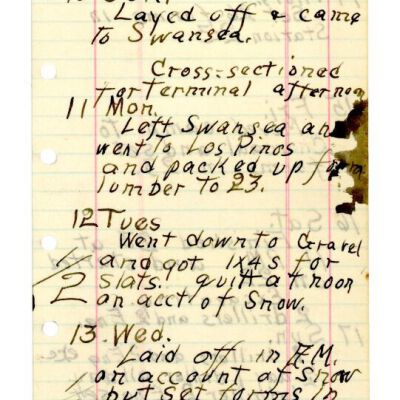 Layed off & came
to Swansea.
Cross-sectioned
for terminal afternoon
11 Mon.
Left Swansea an
went to Los Pinos
and packed up from
lumber to 23.
12 Tues
Went down to Gravel
and got 1x4s for
1/2 slats. quitt at noon
on acct of Snow.
13. Wed.
Laid off in A.M.
on account of Snow
but set forms in